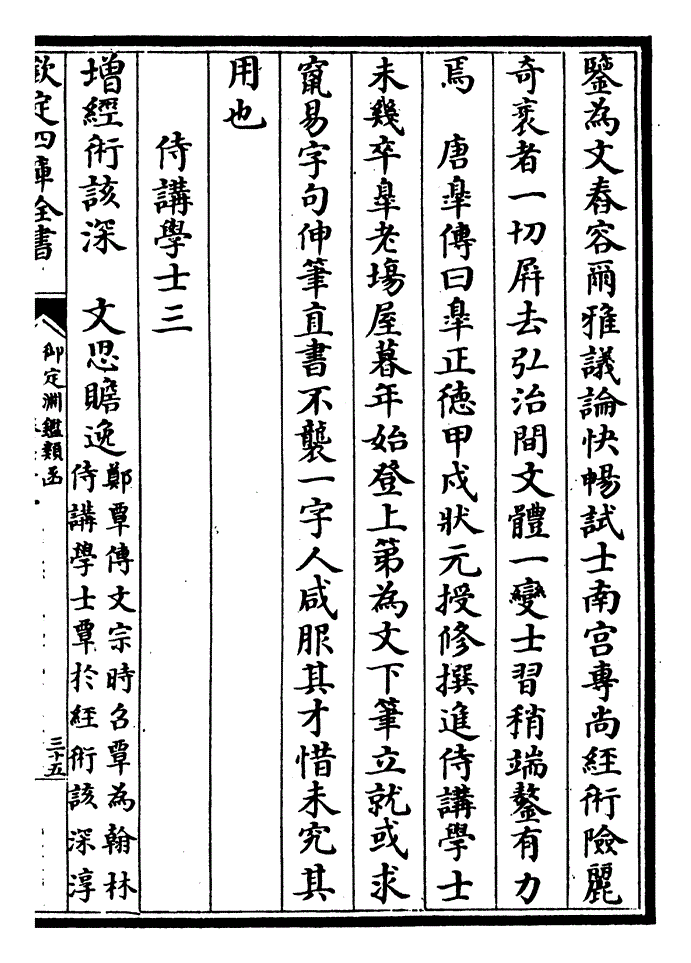 鑒為文舂容爾雅議論快暢試士南宫專尚經術險麗
奇衺者一切屛去弘治間文體一變士習稍端鏊有力
焉　唐臯傳曰臯正徳甲戍狀元授修撰進侍講學士
未幾卒臯老塲屋暮年始登上第為文下筆立就或求
竄易字句伸筆直書不襲一字人咸服其才惜未究其
用也
侍講學士三
增經術該深　文思贍逸鄭覃傳文宗時名覃為翰林
侍講學士覃於經術該深淳
欽定四庫全書
御定淵鑑類函
三十五